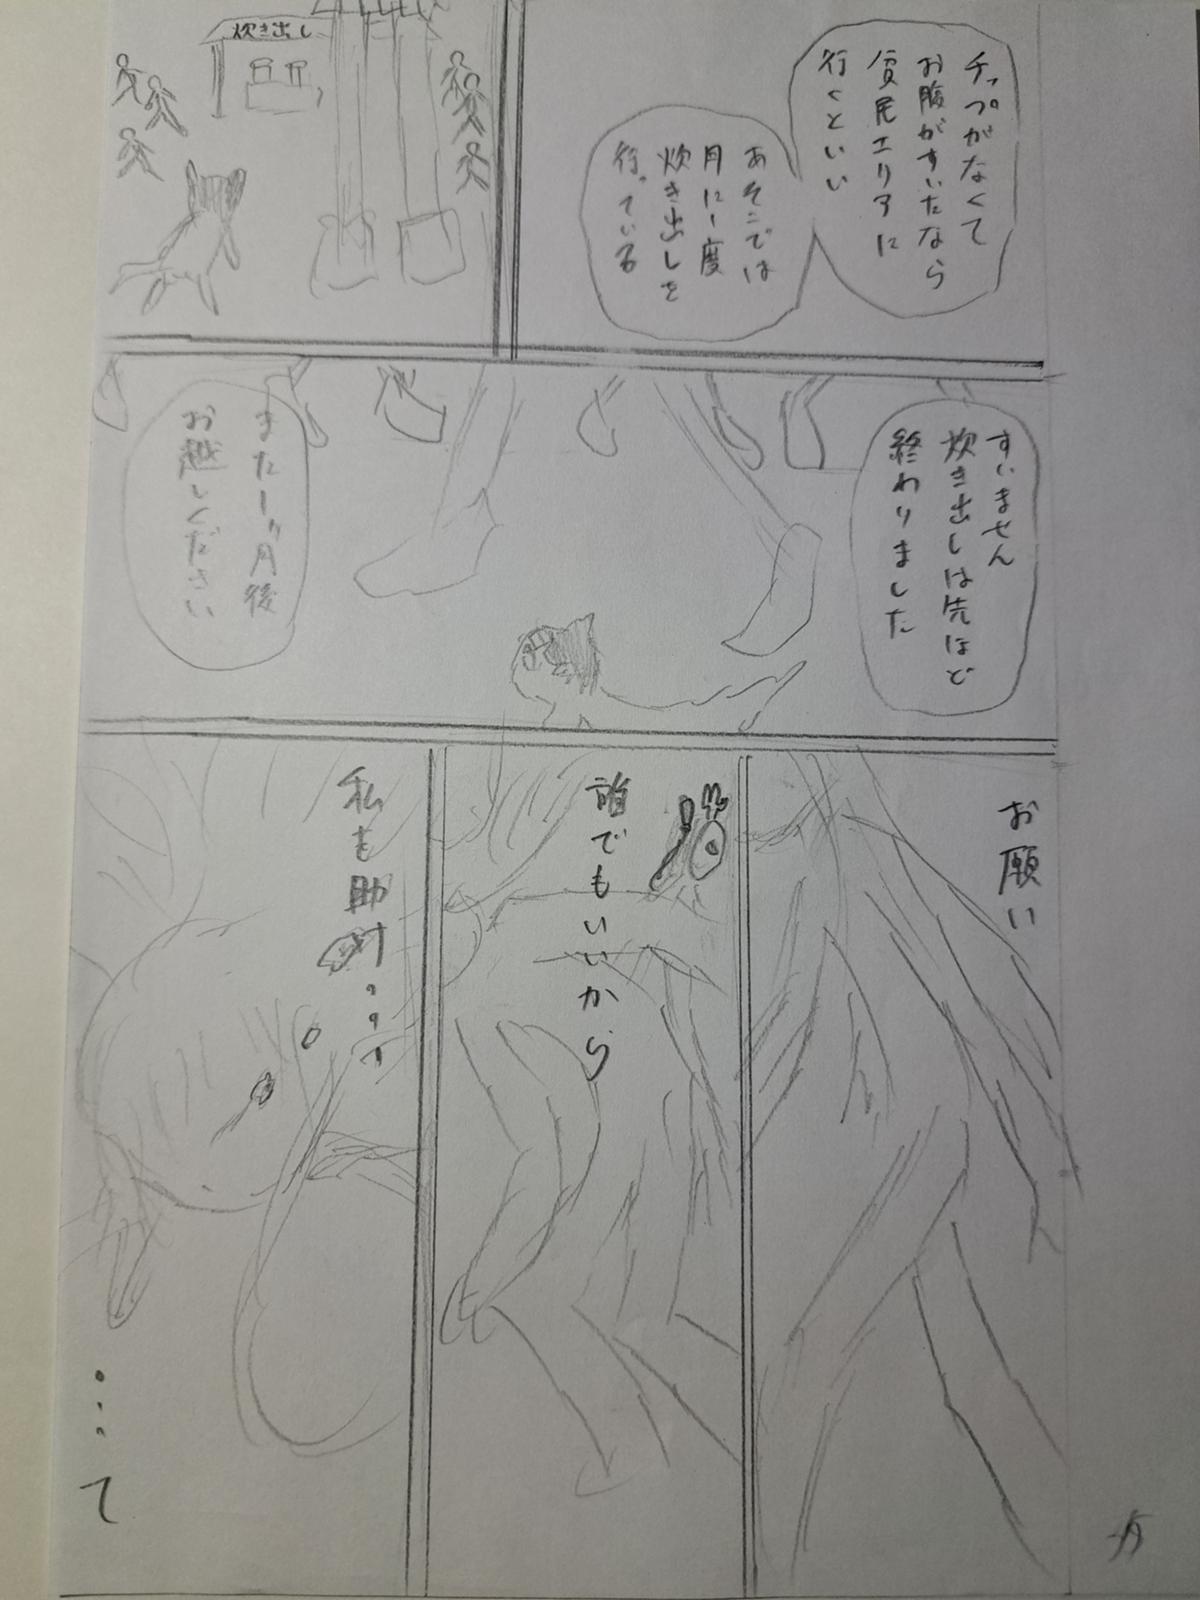 チップがなくて
お腹がすいたなら
貧民エリアに
行くといい
あそこでは
月に1度
炊き出しを
行っている
炊き出し
すいません
炊き出しは先ほど
終わりました
また一ヶ月後
お越しください
お願い
誰でもいいから
私も助け・・・
・・・て